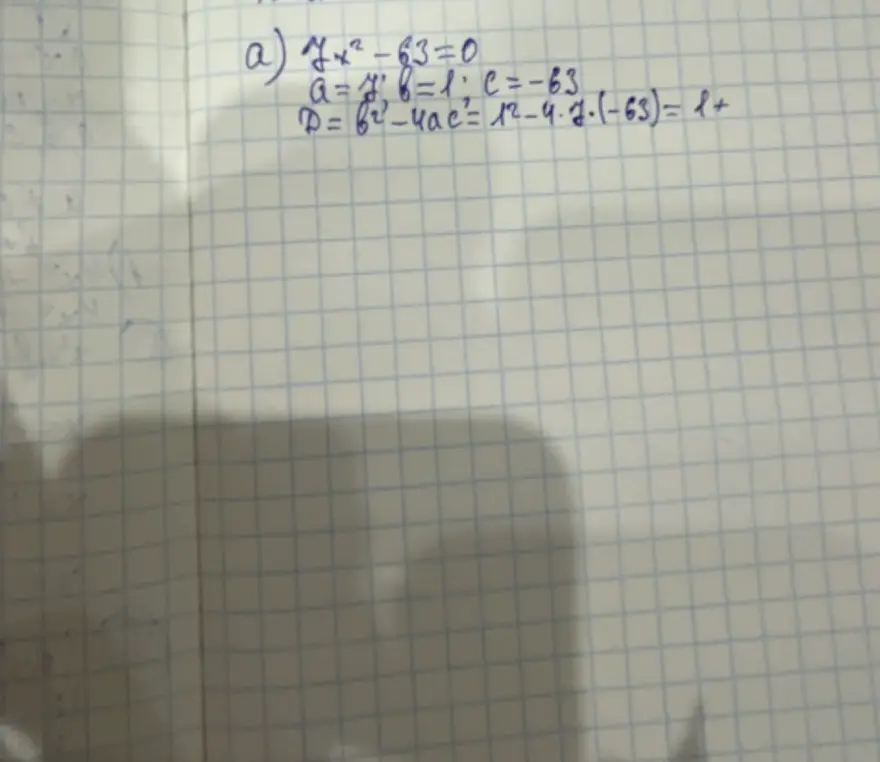 а) 7x² - 63 = 0
a = 7; b = 1; c = -63
D = b² - 4ac = 1² - 4 · 7 · (-63) = 1 +